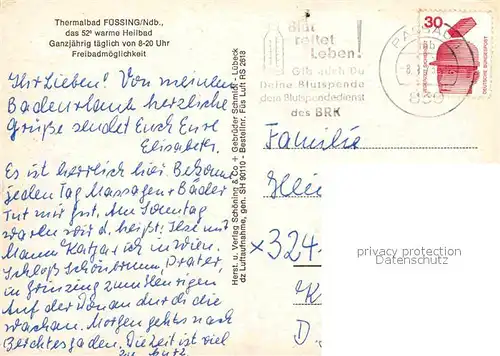 Thermalbad FÜSSING/Ndb.,
das 52° warme Heilbad
Ganzjährig täglich von 8-20 Uhr
Freibadmöglichkeit
Ihr Lieben! Von meinem
Badeurlaub herzliche
Grüße sendet Euch Eure
Elisabeth.
Es ist herrlich hier. Bekomme
jeden Tag Massagen + Bäder
Tut mir gut. Am Sonntag
waren wir d. heißt: Ilse mit
Mann Katja + ich in Wien.
Schloß Schönbrunn, Prater,
in Grinzing zum Heurigen
Auf der Donau durch die
Wachau. Morgen gehts nach
Berchtesgaden. Die Zeit ist viel
zu kurz.
Herst. u. Verlag Schöning & Co + Gebrüder Schmidt - Lübeck
dz Luftaufnahme, gen. SH 90110 - Bestellnr. Füs Luft RS 2618
Blut
rettet
Leben!
Gib auch Du
Deine Blutspende
dem Blutspendedienst
des BRK
PASSAU
30
DEUTSCHE BUNDESPOST
Familie
324
K
D
privacy protection
Datenschutz